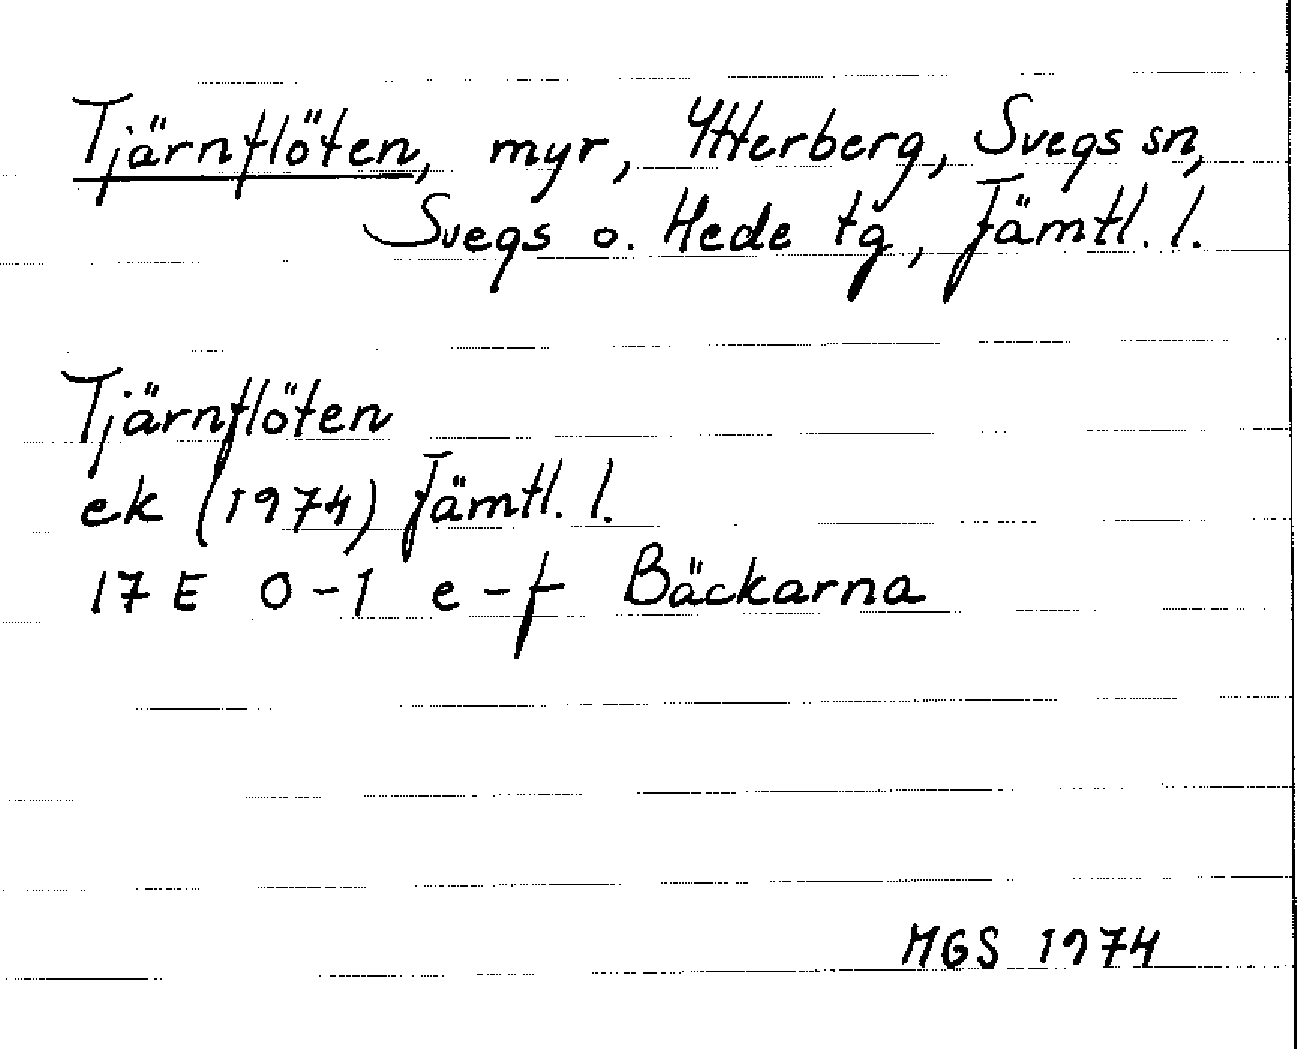 Tjärnflöten, myr, Ytterberg, Svegs sn,
Svegs o. Hede tg, Jämtl. l.
Tjärnflöten
ek (1974) Jämtl. l.
17 E 0-1 e-f Bäckarna
MGS 1974